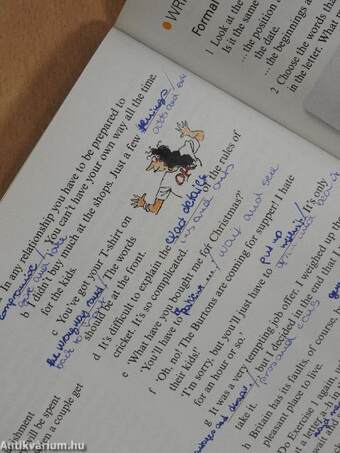 WRI
Formal
1 Look at the
Is it the same
… the position
the date.
… the beginnings a
2 Choose the words tha
in the letter. What
In any relationship you have to be prepared to
compromise / . You can't have your own way all the time.
give and take
b I didn't buy much at the shops. Just a few things /
odds and ends
for the kids.
c You've got your T-shirt on
the wrong way round / . The words
back to
should be at the front.
d It's difficult to explain the exact details / of the rules of
ins and outs
cricket. It's so complicated.
e 'What have you bought me for Christmas?'
'You'll have to / .' wait and see
f 'Oh, no! The Burtons are coming for supper! I hate
their kids!'
'I'm sorry, but you'll just have to put up / it's only
grin and bear it
for an hour or so.'
g It was a very tempting job offer. I weighed up the
/ , but decided in the end that I
pros and cons
take it.
h Britain has its faults, of course, b
pleasant place to live.
Do Exercise 1 again,
ut a letter a–h in
wait and
nment
ill be spent
en a couple get
Antikvárium.hu